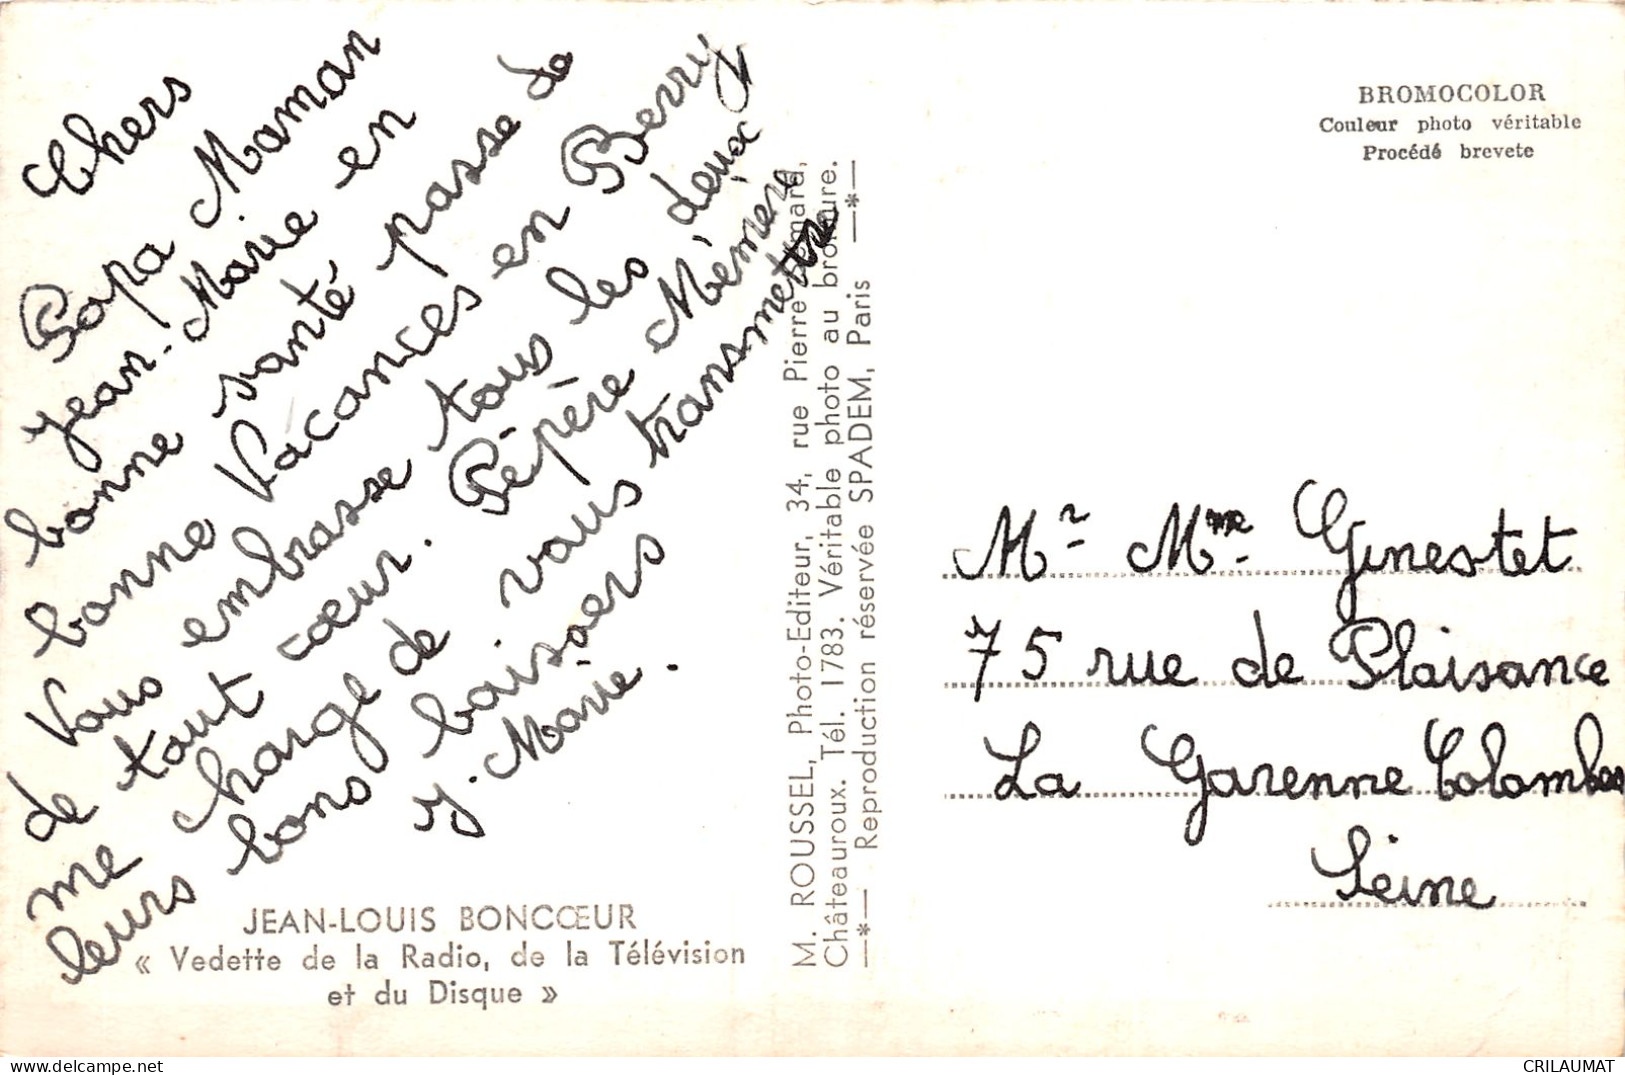 Chers
Papa Maman
Jean-Marie en
bonne santé passe de
bonne Vacances en Berry
Vous embrasse tous les deux
de tout cœur. Pépère Mémère
me charge de vous transmettre
leurs bons baisers
J. Marie.
JEAN-LOUIS BONCŒUR
« Vedette de la Radio, de la Télévision
et du Disque »
M. ROUSSEL, Photo-Editeur, 34, rue Pierre
Châteauroux. Tél. 1783. Véritable photo au bromure.
—*— Reproduction réservée SPADEM, Paris —*—
BROMOCOLOR
Couleur photo véritable
Procédé brevete
Mr Mme Ginestet
75 rue de Plaisance
La Garenne Colombes
Seine
CRILAUMAT